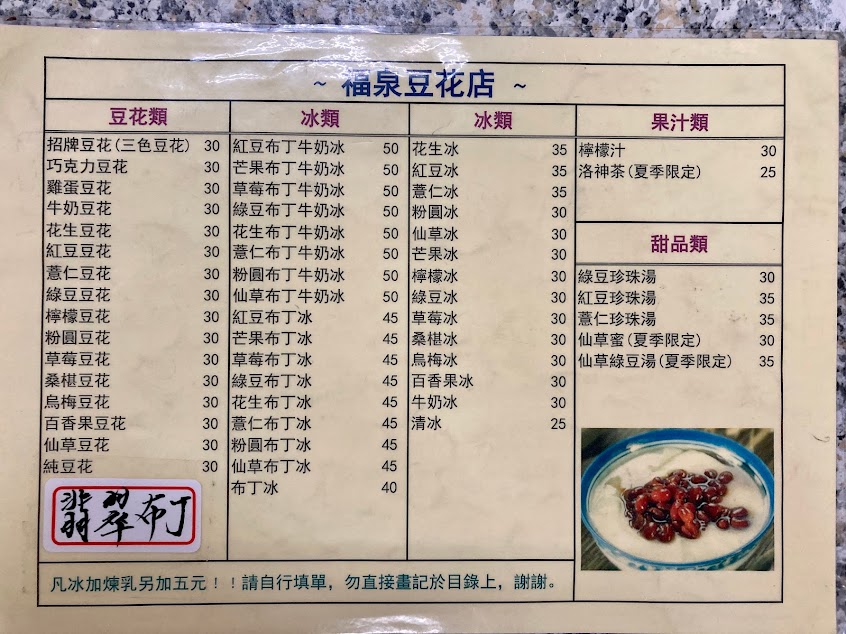 ~ 福泉豆花店 ~
豆花類
招牌豆花(三色豆花) 30
巧克力豆花 30
雞蛋豆花 30
牛奶豆花 30
花生豆花 30
紅豆豆花 30
薏仁豆花 30
綠豆豆花 30
檸檬豆花 30
粉圓豆花 30
草莓豆花 30
桑椹豆花 30
烏梅豆花 30
百香果豆花 30
仙草豆花 30
純豆花 30
翡翠布丁
冰類
紅豆布丁牛奶冰 50
芒果布丁牛奶冰 50
草莓布丁牛奶冰 50
綠豆布丁牛奶冰 50
花生布丁牛奶冰 50
薏仁布丁牛奶冰 50
粉圓布丁牛奶冰 50
仙草布丁牛奶冰 50
紅豆布丁冰 45
芒果布丁冰 45
草莓布丁冰 45
綠豆布丁冰 45
花生布丁冰 45
薏仁布丁冰 45
粉圓布丁冰 45
仙草布丁冰 45
布丁冰 40
冰類
花生冰 35
紅豆冰 35
薏仁冰 35
粉圓冰 30
仙草冰 30
芒果冰 30
檸檬冰 30
綠豆冰 30
草莓冰 30
桑椹冰 30
烏梅冰 30
百香果冰 30
牛奶冰 30
清冰 25
果汁類
檸檬汁 30
洛神茶(夏季限定) 25
甜品類
綠豆珍珠湯 30
紅豆珍珠湯 35
薏仁珍珠湯 35
仙草蜜(夏季限定) 30
仙草綠豆湯(夏季限定) 35
凡冰加煉乳另加五元！！請自行填單，勿直接畫記於目錄上，謝謝。